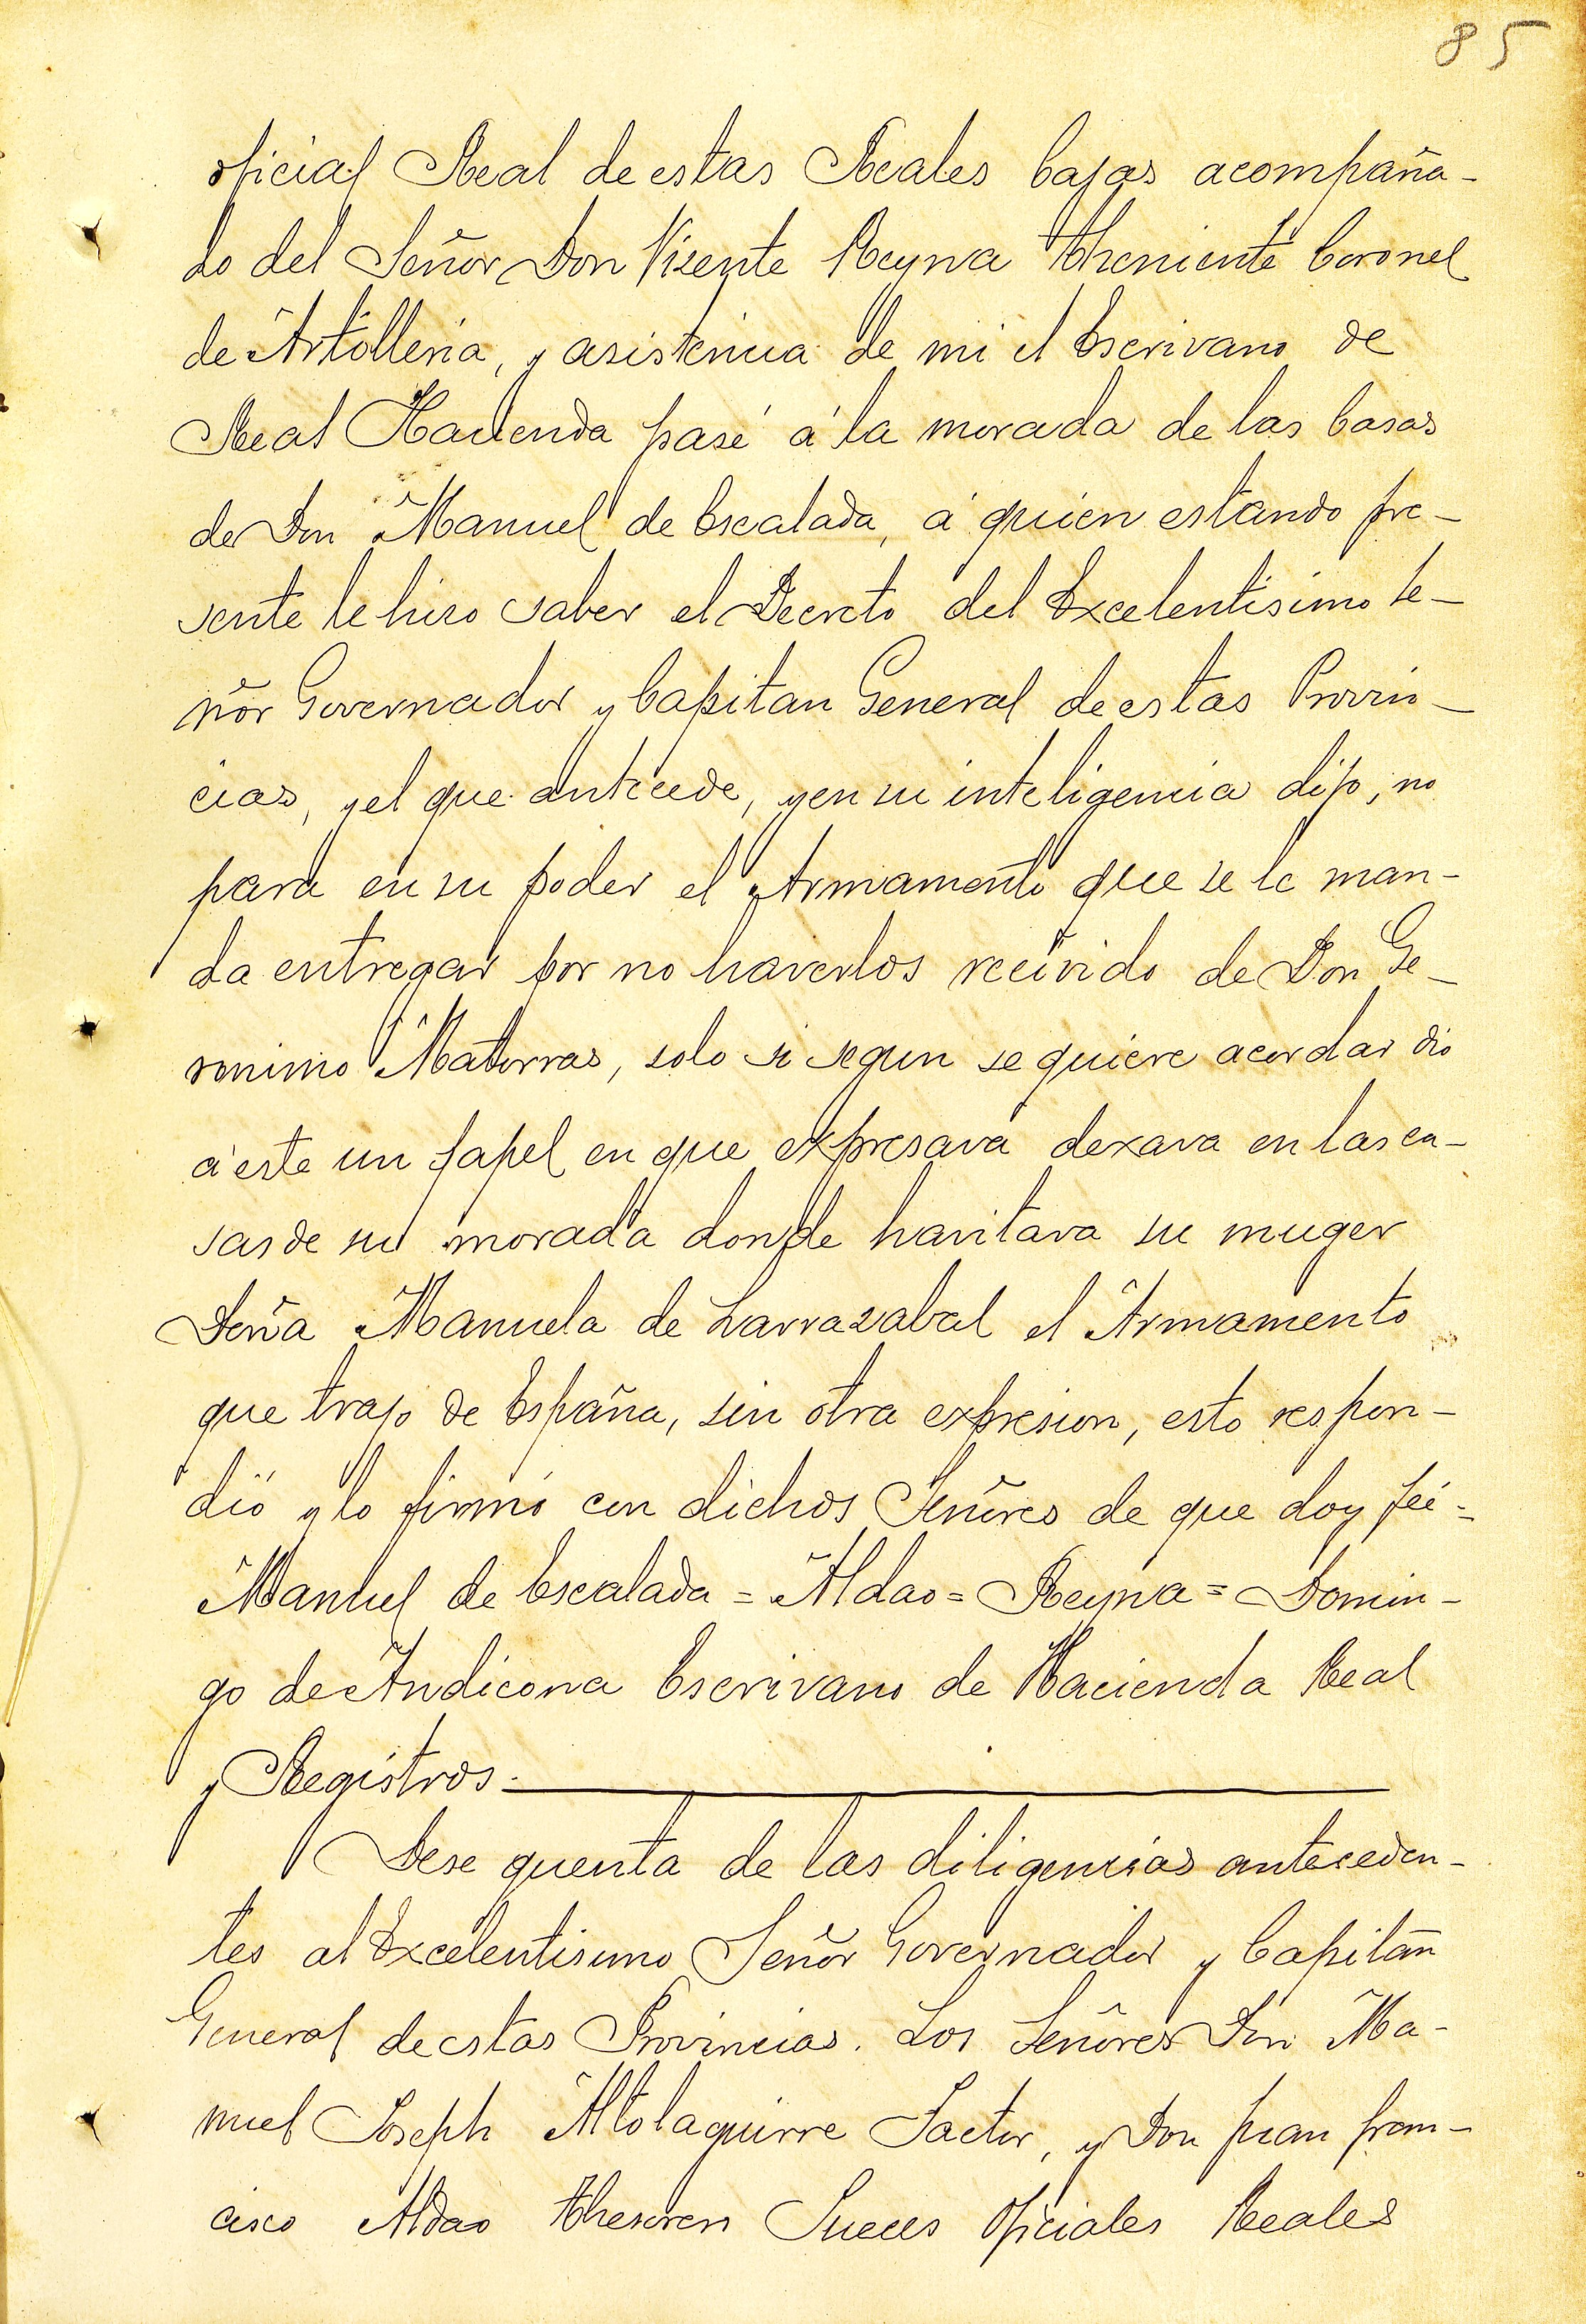 85
oficial Real de estas Reales Cajas acompaña-
do del Señor Don Vizente Reyna Theniente Coronel
de Artilleria, y asistencia de mi el Escrivano de
Real Hacienda pasé á la morada de las Casas
de Don Manuel de Escalada, á quien estando pre-
sente le hizo saber el Decreto del Excelentisimo Se-
ñor Governador y Capitan General de estas Provin-
cias, y el que antecede, y en su inteligencia dijo, no
para en su poder el Armamento que se le man-
da entregar por no haverlos recivido de Don Ge-
ronimo Matorras, solo si segun se quiere acordar dio
á este un papel en que expresava dexava en las ca-
sas de su morada donde havitava su muger
Doña Manuela de Larrazabal el Armamento
que trajo de España, sin otra expresion, esto respon-
dió y lo firmó con dichos Señores de que doy feé=
Manuel de Escalada = Aldao = Reyna = Domin-
go de Andicona Escrivano de Hacienda Real
y Registros.
Dese quenta de las diligencias anteceden-
tes al Excelentisimo Señor Governador y Capitán
General de estas Provincias. Los Señores Don Ma-
nuel Joseph Altolaguirre Factor, y Don Juan Fran-
cisco Aldao Thesorero Jueces Oficiales Reales